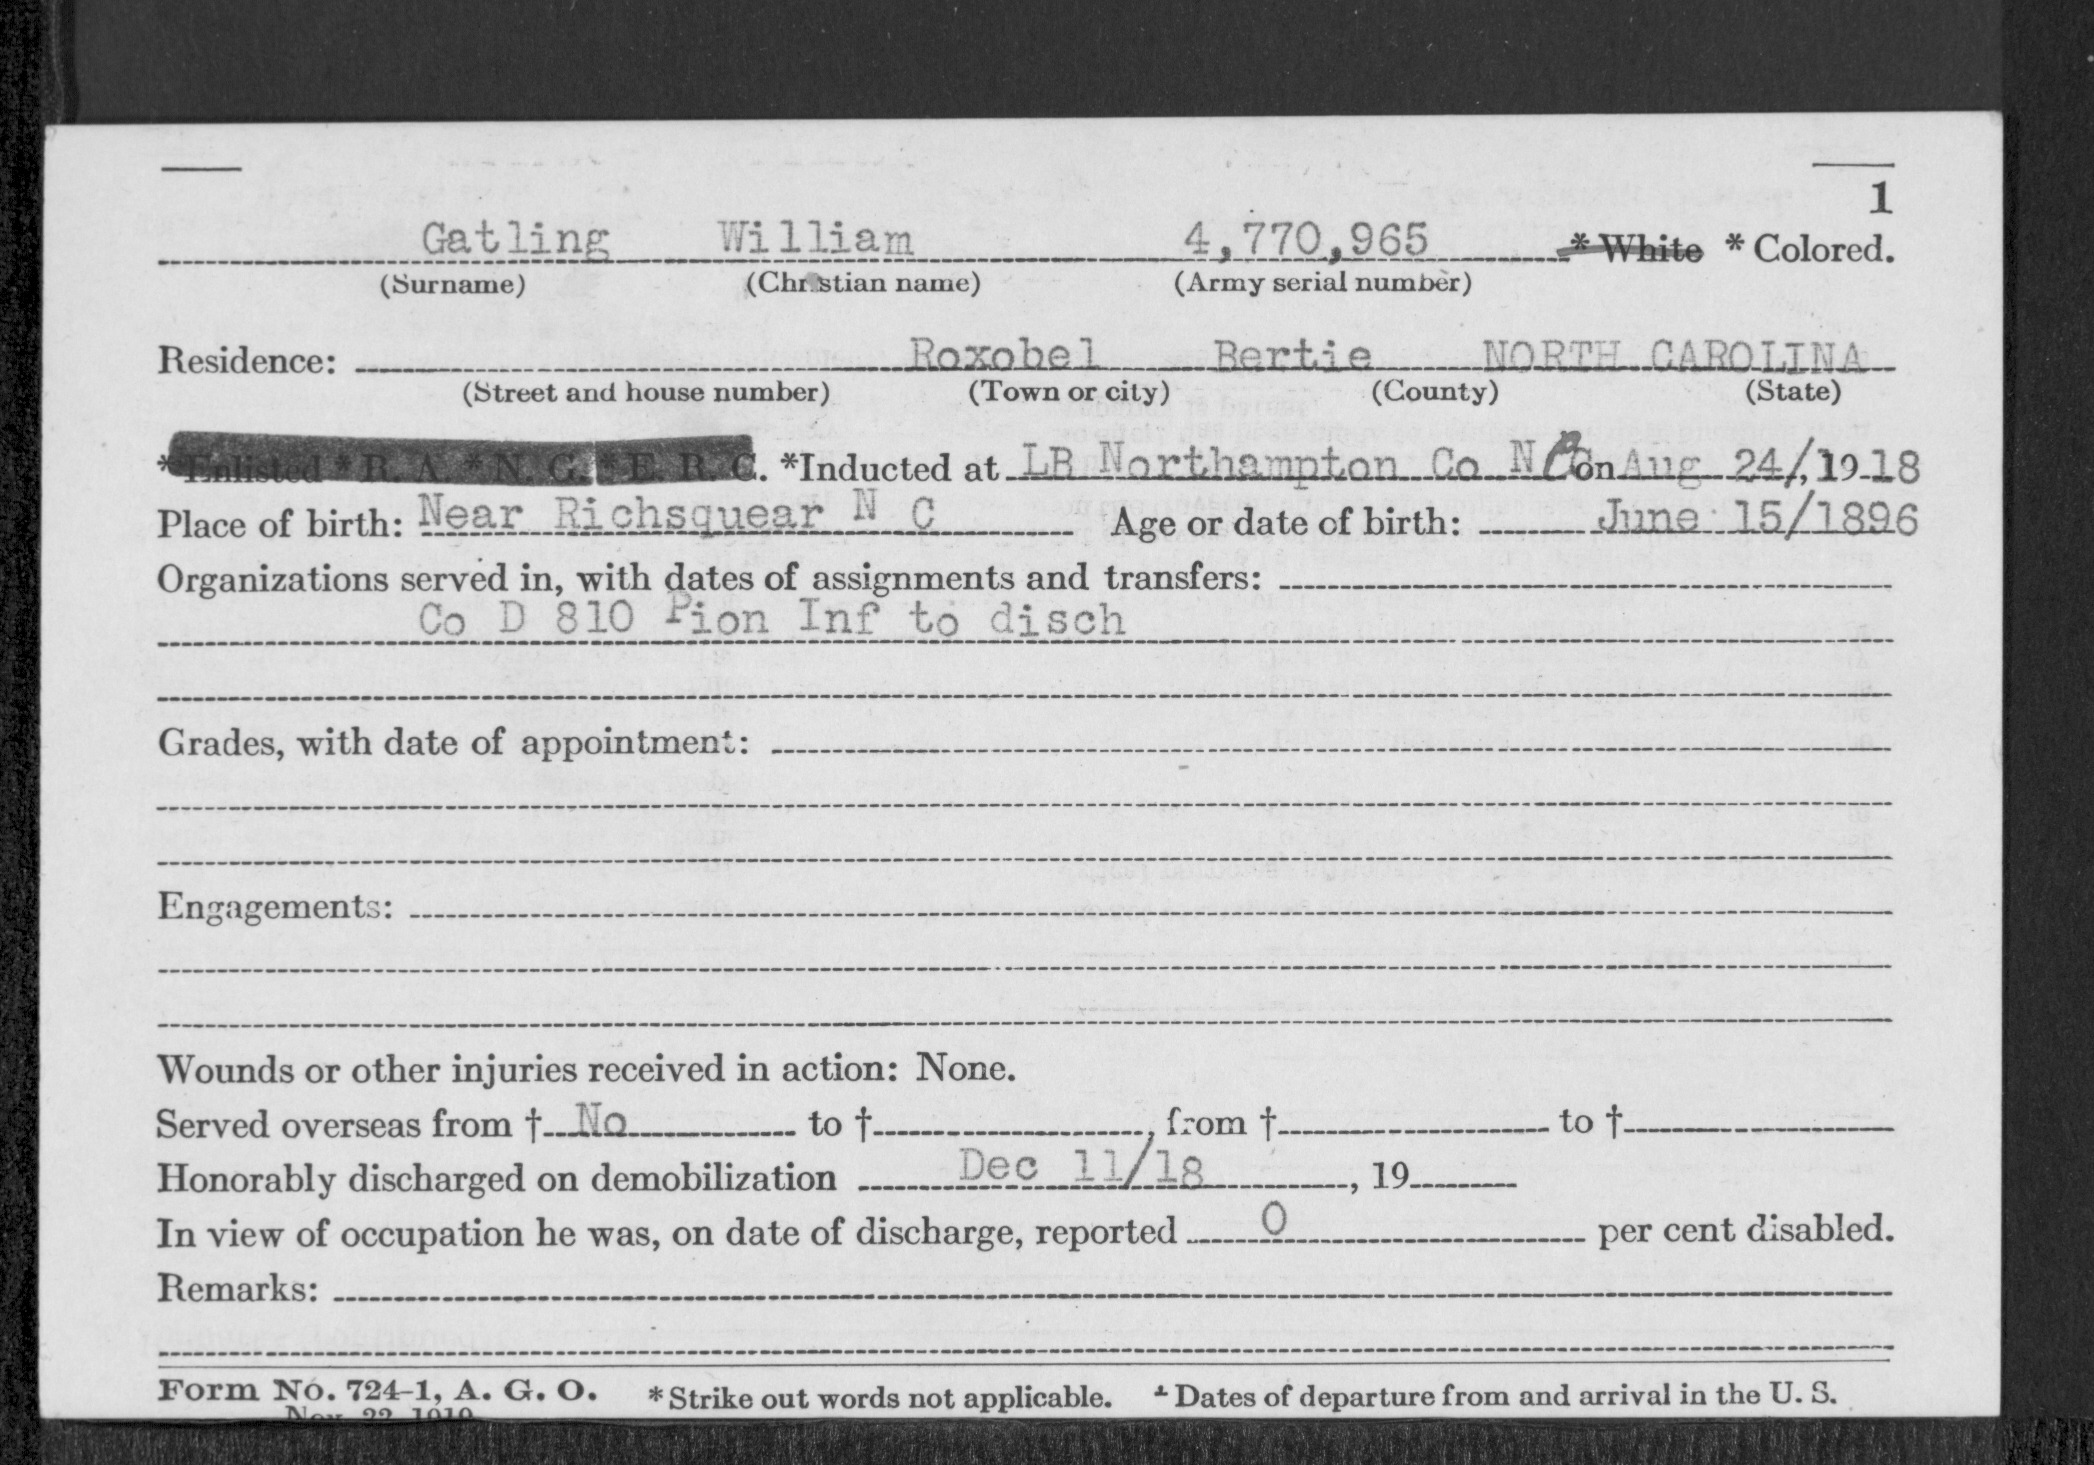 1
Gatling William 4,770,965 * White * Colored.
(Surname) (Christian name) (Army serial number)
Residence: Roxobel Bertie NORTH CAROLINA
(Street and house number) (Town or city) (County) (State)
*Enlisted * R. A. * N. G. * E. R. C. *Inducted at LB Northampton Co N C on Aug 24/, 19 18
Place of birth: Near Richsquear N C Age or date of birth: June 15/1896
Organizations served in, with dates of assignments and transfers:
Co D 810 Pion Inf to disch
Grades, with date of appointment:
Engagements:
Wounds or other injuries received in action: None.
Served overseas from † No to †, from † to †
Honorably discharged on demobilization Dec 11/18, 19
In view of occupation he was, on date of discharge, reported 0 per cent disabled.
Remarks:
Form No. 724-1, A. G. O. * Strike out words not applicable. † Dates of departure from and arrival in the U. S.
Nov. 22, 1919